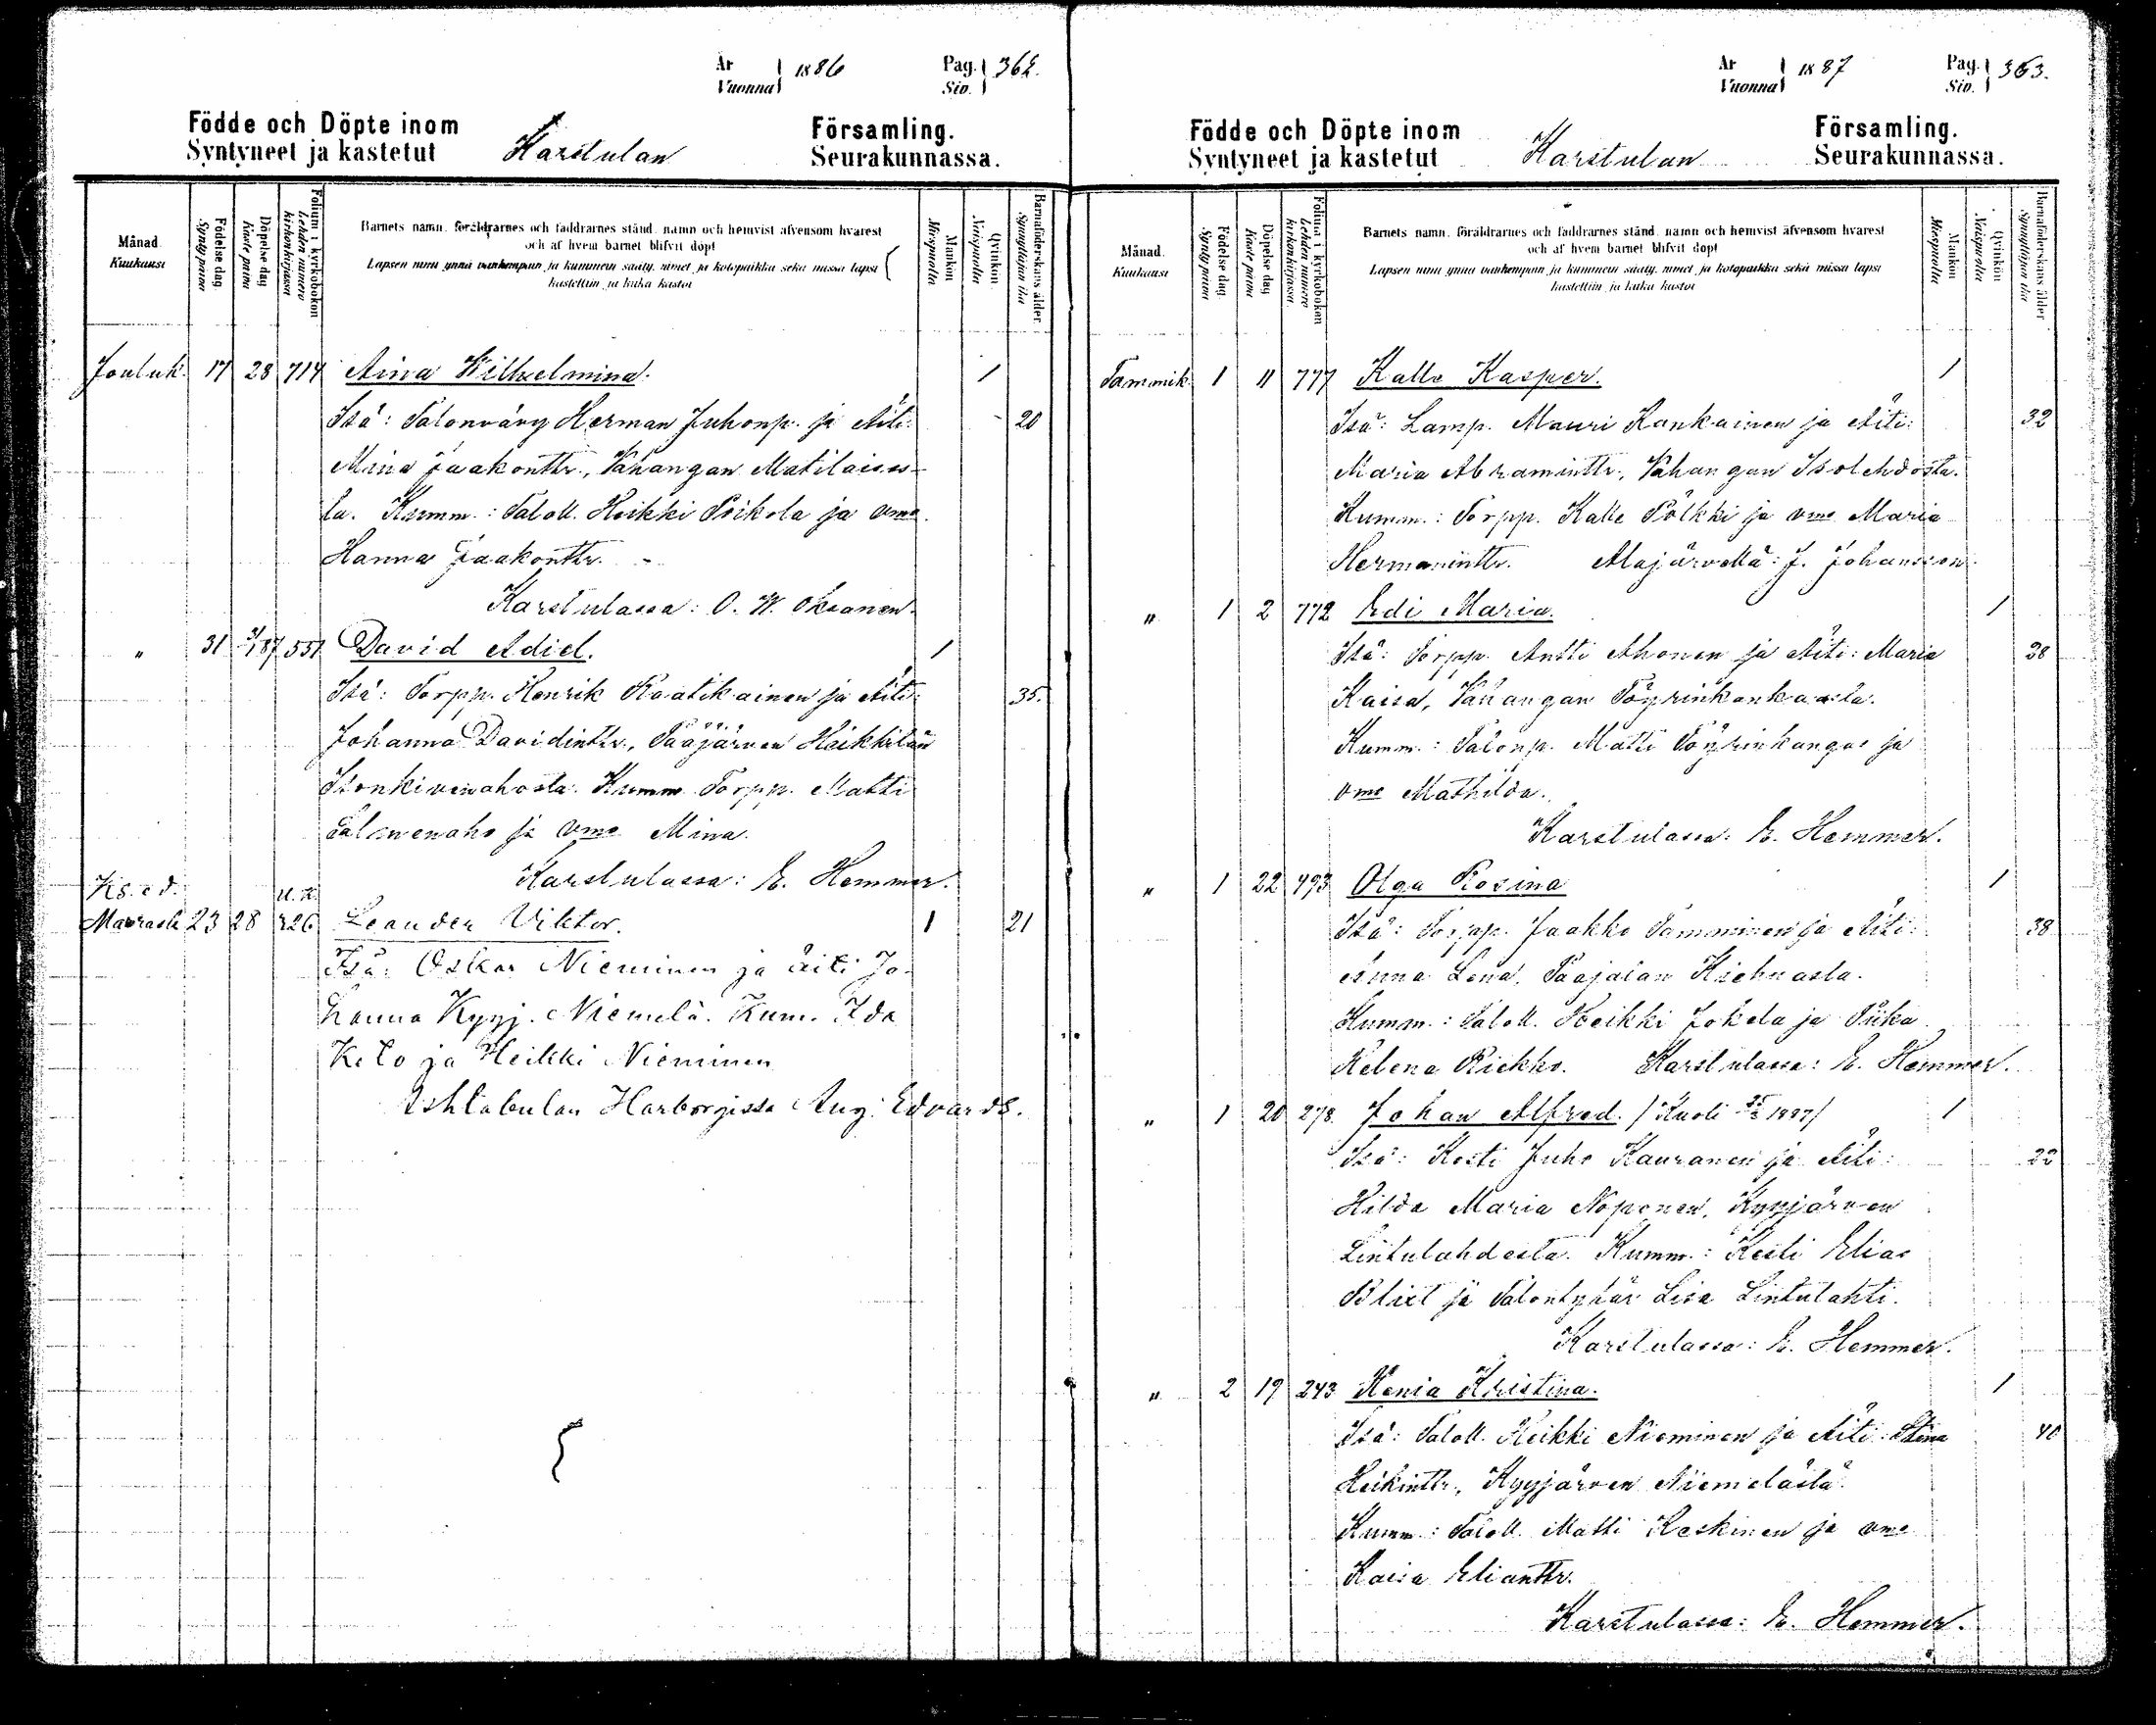 År
Vuonna
1886
Pag.
Siv.
362.
Födde och Döpte inom
Syntyneet ja kastetut
Karstulan
Församling.
Seurakunnassa.
Månad
Kuukausi
Födelse dag
Synty päivä
Döpelse dag
Kaste päivä
Folium i kyrkoboken
Lehden numero kirkonkirjassa
Barnets namn, föräldrarnes och faddrarnes stånd, namn och hemvist äfvensom hvarest
och af hvem barnet blifvit döpt
Lapsen nimi ynnä vanhempain ja kummein sääty, nimet ja kotopaikka sekä missä lapsi
kastettiin ja kuka kastoi
Mankön
Miespuolia
Qvinkön
Naispuolia
Barnaföderskans ålder
Synnyttäjän ikä
Jouluk. 17 28 714 Aina Wilhelmina. 1
Isä: Talonvävy Herman Juhonp. ja Äiti: 20
Mina Jaakonttr., Vahangan Matilaises-
ta. Kumm.: Taloll. Heikki Poikola ja vmo
Hanna Jaakonttr.
Karstulassa: O. W. Oksanen.
" 31 /87 551 David Adiel. 1
Isä: Torpp. Henrik Raatikainen ja Äiti: 35.
Johanna Davidinttr., Pääjärven Heikkilän
Isonkivenahosta. Kumm. Torpp. Matti
ja vmo Mina.
Karstulassa: E. Hemmer.
Ks. ed. U. K.
Marrask 23 28 326 Leander Viktor. 1 21
Isä: Oskar Nieminen ja äiti Jo-
hanna Kyyj. Niemelä. Kum. Ida
Keto ja Heikki Nieminen
Ashtabulan Harborissa Aug. Edvards.
År
Vuonna
1887
Pag.
Siv.
363.
Födde och Döpte inom
Syntyneet ja kastetut
Karstulan
Församling.
Seurakunnassa.
Månad.
Kuukausi
Födelse dag
Synty päivä
Döpelse dag
Kaste päivä
Folium i kyrkoboken
Lehden numero kirkonkirjassa
Barnets namn, föräldrarnes och faddrarnes stånd, namn och hemvist äfvensom hvarest
och af hvem barnet blifvit döpt
Lapsen nimi ynnä vanhempain ja kummein sääty, nimet ja kotopaikka sekä missä lapsi
kastettiin ja kuka kastoi
Mankön
Miespuolia
Qvinkön
Naispuolia
Barnaföderskans ålder
Synnyttäjän ikä
Tammik. 1 11 777 Kalle Kasper. 1
Isä: Lamp. Mauri Kankainen ja Äiti: 32
Maria Abraminttr., Vahangan Isolehdosta.
Kumm.: Torpp. Kalle Pölkki ja vmo Maria
Hermaninttr. Alajärvellä: J. Johansson.
" 1 2 772 Edi Maria. 1
Isä: Torpp. Antti Ahonen ja Äiti: Maria 28
Kaisa, Vahangan Töyrinkankaasta.
Kumm.: Talonp. Matti Töyrinkangas ja
vmo Mathilda.
Karstulassa: E. Hemmer.
" 1 22 493 Olga Rosina 1
Isä: Torpp. Jaakko Tamminen ja Äiti: 38
Anna Lena, Pääjalan Kiehuasta.
Kumm.: Taloll. Heikki Jokela ja Piika
Helena Riekko. Karstulassa: E. Hemmer.
" 1 20 278. Johan Alfred. /Kuoli 1887/ 1
Isä: Kesti Juho Kauranen ja Äiti: 22
Hilda Maria Noponen, Kyyjärven
Lintulahdesta. Kumm.: Kesti Elias
Blixt ja Talontytär Lisa Lintulahti.
Karstulassa: E. Hemmer.
" 2 19 243 Henia Kristina. 1
Isä: Taloll. Heikki Nieminen ja Äiti: Stina 40
Heikinttr., Kyyjärven Niemelästä.
Kumm: Taloll. Matti Keskinen ja vmo
Kaisa Elianttr.
Karstulassa: E. Hemmer.